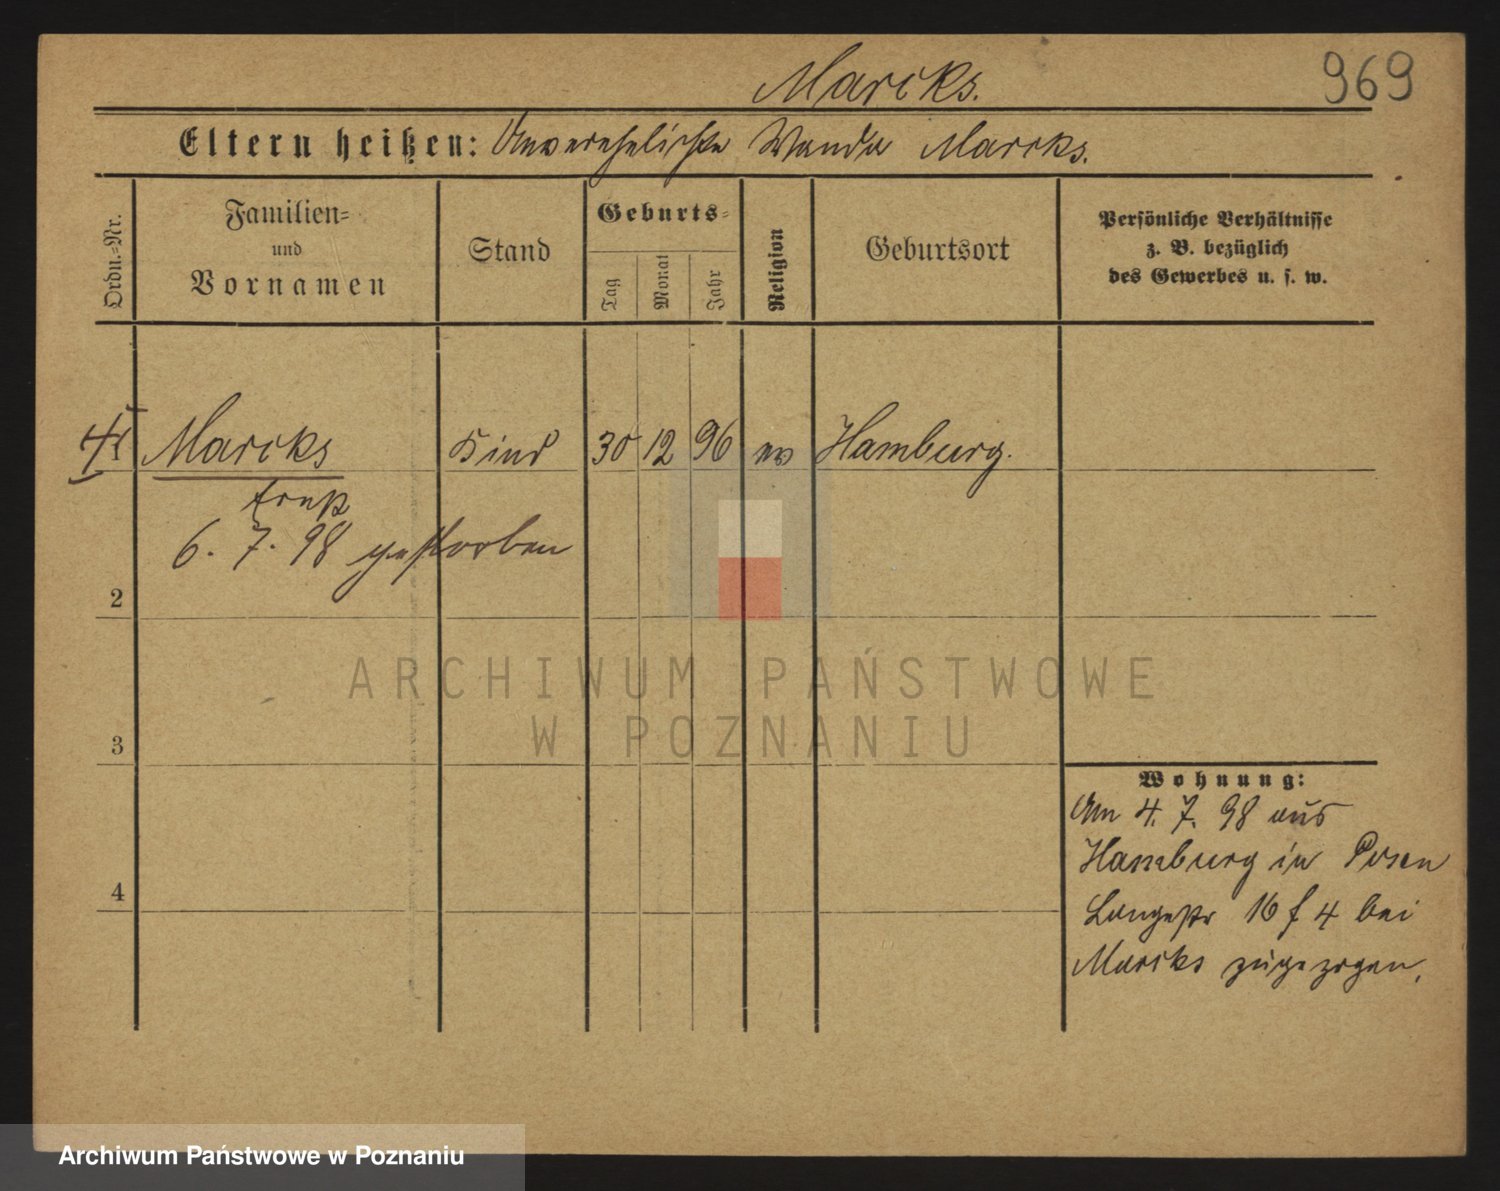 Marcks.
969
Eltern heißen: Unverehelichte Wanda Marcks.
Ordn.-Nr.
Familien-
und
Vornamen
Stand
Geburts-
Tag
Monat
Jahr
Religion
Geburtsort
Persönliche Verhältnisse
z. B. bezüglich
des Gewerbes u. s. w.
Marcks Kind 30 12 96 ev Hamburg.
Ernst
6. 7. 98 gestorben
2
3
4
Wohnung:
Am 4. 7. 98 aus
Hamburg in Posen
Langestr 16 f 4 bei
Marcks zugezogen.
ARCHIWUM PAŃSTWOWE
W POZNANIU
Archiwum Państwowe w Poznaniu